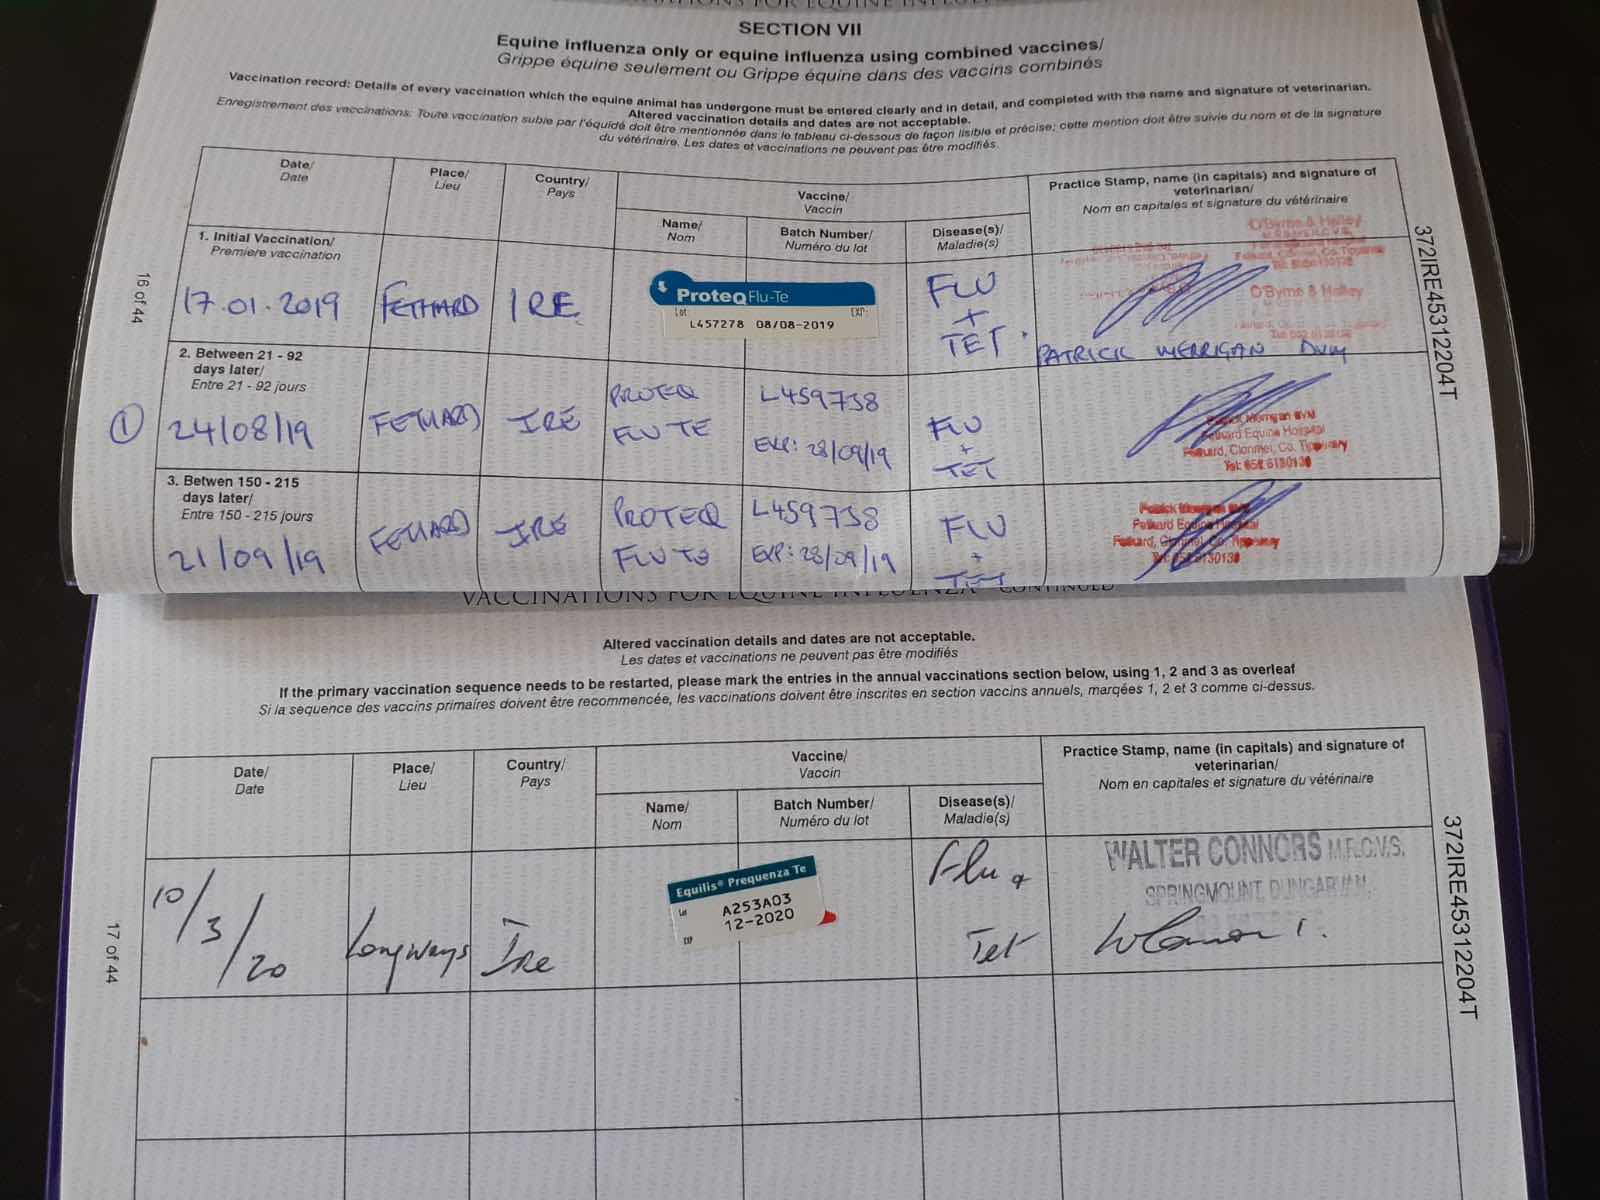 SECTION VII
Equine influenza only or equine influenza using combined vaccines/
Grippe équine seulement ou Grippe équine dans des vaccins combinés
Vaccination record: Details of every vaccination which the equine animal has undergone must be entered clearly and in detail, and completed with the name and signature of veterinarian.
Altered vaccination details and dates are not acceptable.
Enregistrement des vaccinations: Toute vaccination subie par l'équidé doit être mentionnée dans le tableau ci-dessous de façon lisible et précise; cette mention doit être suivie du nom et de la signature
du vétérinaire. Les dates et vaccinations ne peuvent pas être modifiés.
Date/
Date
Place/
Lieu
Country/
Pays
Vaccine/
Vaccin
Name/
Nom
Batch Number/
Numéro du lot
Disease(s)/
Maladie(s)
Practice Stamp, name (in capitals) and signature of
veterinarian/
Nom en capitales et signature du vétérinaire
1. Initial Vaccination/
Premiere vaccination
17.01.2019
FETHARD
IRE
ProteqFlu-Te
Lot: EXP:
L457278 08/08-2019
FLU
+
TET
O'Byrne & Halley
O'Byrne & Halley
PATRICK MERRIGAN DVM
2. Between 21 - 92
days later/
Entre 21 - 92 jours
1
24/08/19
FETHARD
IRE
PROTEQ
FLU TE
L459738
EXP: 28/09/19
FLU
+
TET
Fethard Equine Hospital
Fethard, Clonmel, Co. Tipperary
Tel: 052 6130130
3. Betwen 150 - 215
days later/
Entre 150 - 215 jours
21/09/19
FETHARD
IRE
PROTEQ
FLU TE
L459738
EXP: 28/09/19
FLU
+
TET
Fethard Equine Hospital
Fethard, Clonmel, Co. Tipperary
16 of 44
372IRE45312204T
VACCINATIONS FOR EQUINE INFLUENZA - CONTINUED
Altered vaccination details and dates are not acceptable.
Les dates et vaccinations ne peuvent pas être modifiés
If the primary vaccination sequence needs to be restarted, please mark the entries in the annual vaccinations section below, using 1, 2 and 3 as overleaf
Si la sequence des vaccins primaires doivent être recommencée, les vaccinations doivent être inscrites en section vaccins annuels, marqées 1, 2 et 3 comme ci-dessus.
Date/
Date
Place/
Lieu
Country/
Pays
Vaccine/
Vaccin
Name/
Nom
Batch Number/
Numéro du lot
Disease(s)/
Maladie(s)
Practice Stamp, name (in capitals) and signature of
veterinarian/
Nom en capitales et signature du vétérinaire
10/3/20
Longways
Ire
Equilis® Prequenza Te
Lot A253A03
EXP 12-2020
Flu &
Tet
WALTER CONNORS M.R.C.V.S.
SPRINGMOUNT, DUNGARVAN,
17 of 44
372IRE45312204T